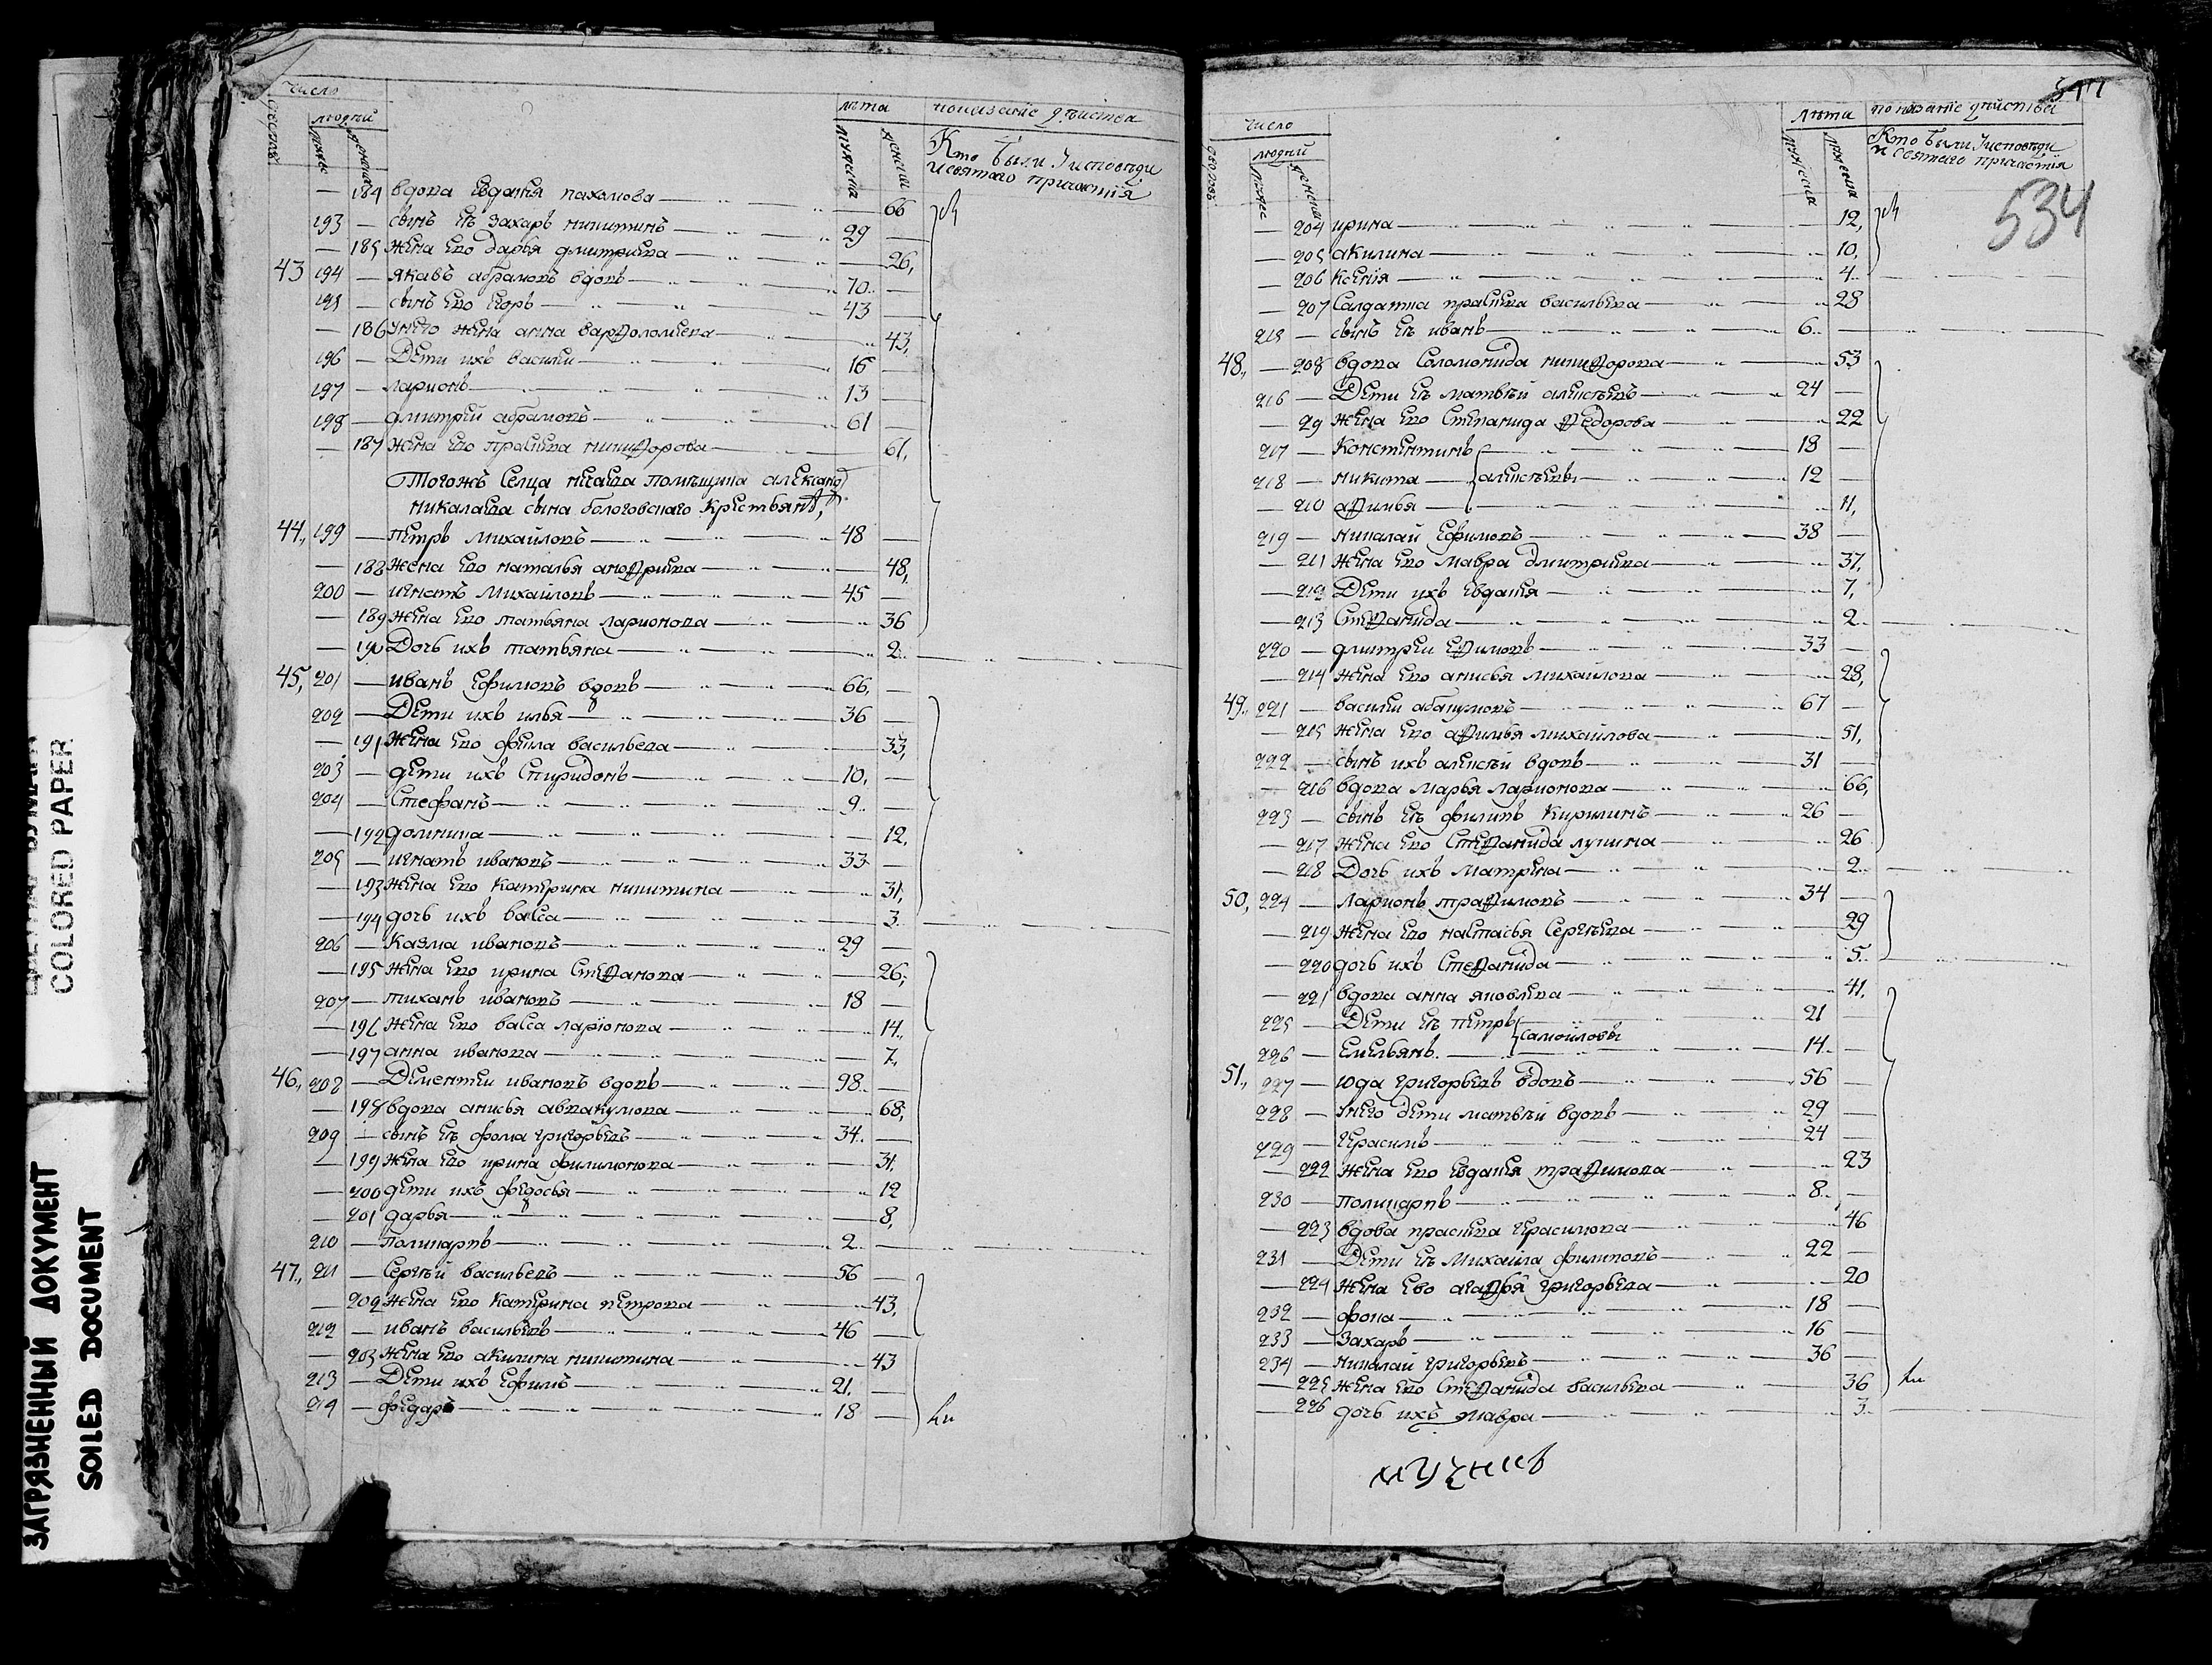 число
людей
лѣта
показание дѣиства
Кто были Уисповѣди
и святаго причастїя
— 184 вдова Евдакея пахомова — 66
193 — сынъ Еѣ Захаръ никитинъ — 29 —
— 185 жена Ево дарья дмитриева — 26,
43 194 — якавъ абрамовъ вдовъ — 70 —
195 — сынъ Ево Егоръ — 43 —
— 186 Унего жена анна варѳоломеева — 43,
196 — Дети ихъ васили — 16 —
197 — ларионъ — 13 —
198 — дмитреи абрамовъ — 61 —
— 187 жена Ево прасцева никиѳорова — 61,
Тогожъ Селца помѣщика александ
никалаева сына бологовскаго Крестьянѣ,
44, 199 — петръ Михайловъ — 48 —
— 188 жена Ево наталья анѳриева — 48,
200 — игнатъ Михаиловъ — 45 —
— 189 жена Ево татьяна ларионова — 36
— 190 Дочь ихъ татьяна — 2
45, 201 — иванъ Ефимовъ вдовъ — 66, —
202 — Дети ихъ илья — 36 —
— 191 жена Ево фекла васильева — 33,
203 — дети ихъ Спиридонъ — 10, —
204 — Стефанъ — 9 —
— 192 домника — 12,
205 — игнатъ ивановъ — 33 —
— 193 жена Ево Катерина никитина — 31,
— 194 дочь ихъ васса — 3
206 — Казма ивановъ — 29 —
— 195 жена Ево ирина Стеѳанова — 26,
207 — тиханъ ивановъ — 18 —
— 196 жена Ево васса ларїонова — 14
— 197 анна иванова — 7,
46, 208 — Дементеи ивановъ вдовъ — 98 —
— 198 вдова анисья аввакумова — 68,
209 — сынъ Еѣ фома григорьевъ — 34 —
— 199 жена Ево ирина филимонова — 31,
— 200 дети ихъ федосья — 12
— 201 дарья — 8,
210 — Поликарпъ — 2
47, 211 — Сергѣй васильевъ — 56 —
— 202 жена Ево Катерина петрова — 43,
212 — иванъ васильевъ — 46 —
— 203 жена Ево акилина никитина — 43
213 — Дети ихъ Ефимъ — 21, —
214 — федаръ — 18 —
534
число
людей
лѣта
показанїе дѣиства
Кто были Уисповѣди
и святаго причастїя
— 204 ирина — 12,
— 205 акилина — 10,
— 206 Ксенїя — 4
— 207 Салдатка прасцева васильева — 28
215 — сынъ Еѣ иванъ — 6 —
48, — 208 вдова Соломонида никиѳорова — 53
216 — Дети Еѣ матвѣй алексѣевъ — 24 —
— 29 жена Ево Степанида Ѳедорова — 22
217 — Констентинъ — 18 —
218 — никита — алексѣевы — 12 —
— 210 аѳимья — 11,
219 — николай Ефимовъ — 38 —
— 211 жена Ево мавра дмитриева — 37,
— 212 Дети ихъ Евдакея — 7,
— 213 Стеѳанида — 2
220 — дмитреи Еѳимовъ — 33 —
— 214 жена Ево анисья михаилова — 28,
49, 221 — васили абакумовъ — 67 —
— 215 жена Ево аѳимья михаилова — 51,
222 — сынъ ихъ алексѣй вдовъ — 31 —
— 216 вдова марья ларионова — 66,
223 — сынъ Еѣ филипъ Кирилинъ — 26 —
— 217 жена Ево Стеѳанида лукина — 26
— 218 Дочь ихъ матрена — 2
50, 224 — ларионъ траѳимовъ — 34 —
— 219 жена Ево настасья Сергѣева — 29
— 220 дочь ихъ Стеѳанида — 5
— 221 вдова анна яковлева — 41,
225 — Дети Еѣ петръ — 21 —
самоиловы
226 — Емельянъ — 14 —
51, 227 — юда григорьевъ вдовъ — 56 —
228 — Унего дети матвѣй вдовъ — 29 —
229 — герасимъ — 24 —
— 222 жена Ево Евдакея траѳимова — 23
230 — Поликарпъ — 8 —
— 223 вдова прасцева герасимова — 46
231 — Дети Еѣ Михаила филиповъ — 22 —
— 224 жена Ево агаѳья григорьева — 20
232 — фока — 18 —
233 — Захаръ — 16 —
234 — николай григорьевъ — 36 —
— 225 жена Ево Стеѳанида васильева — 36
— 226 дочь ихъ мавра — 3
COLORED PAPER
ЗАГРЯЗНЕННЫЙ ДОКУМЕНТ
SOILED DOCUMENT